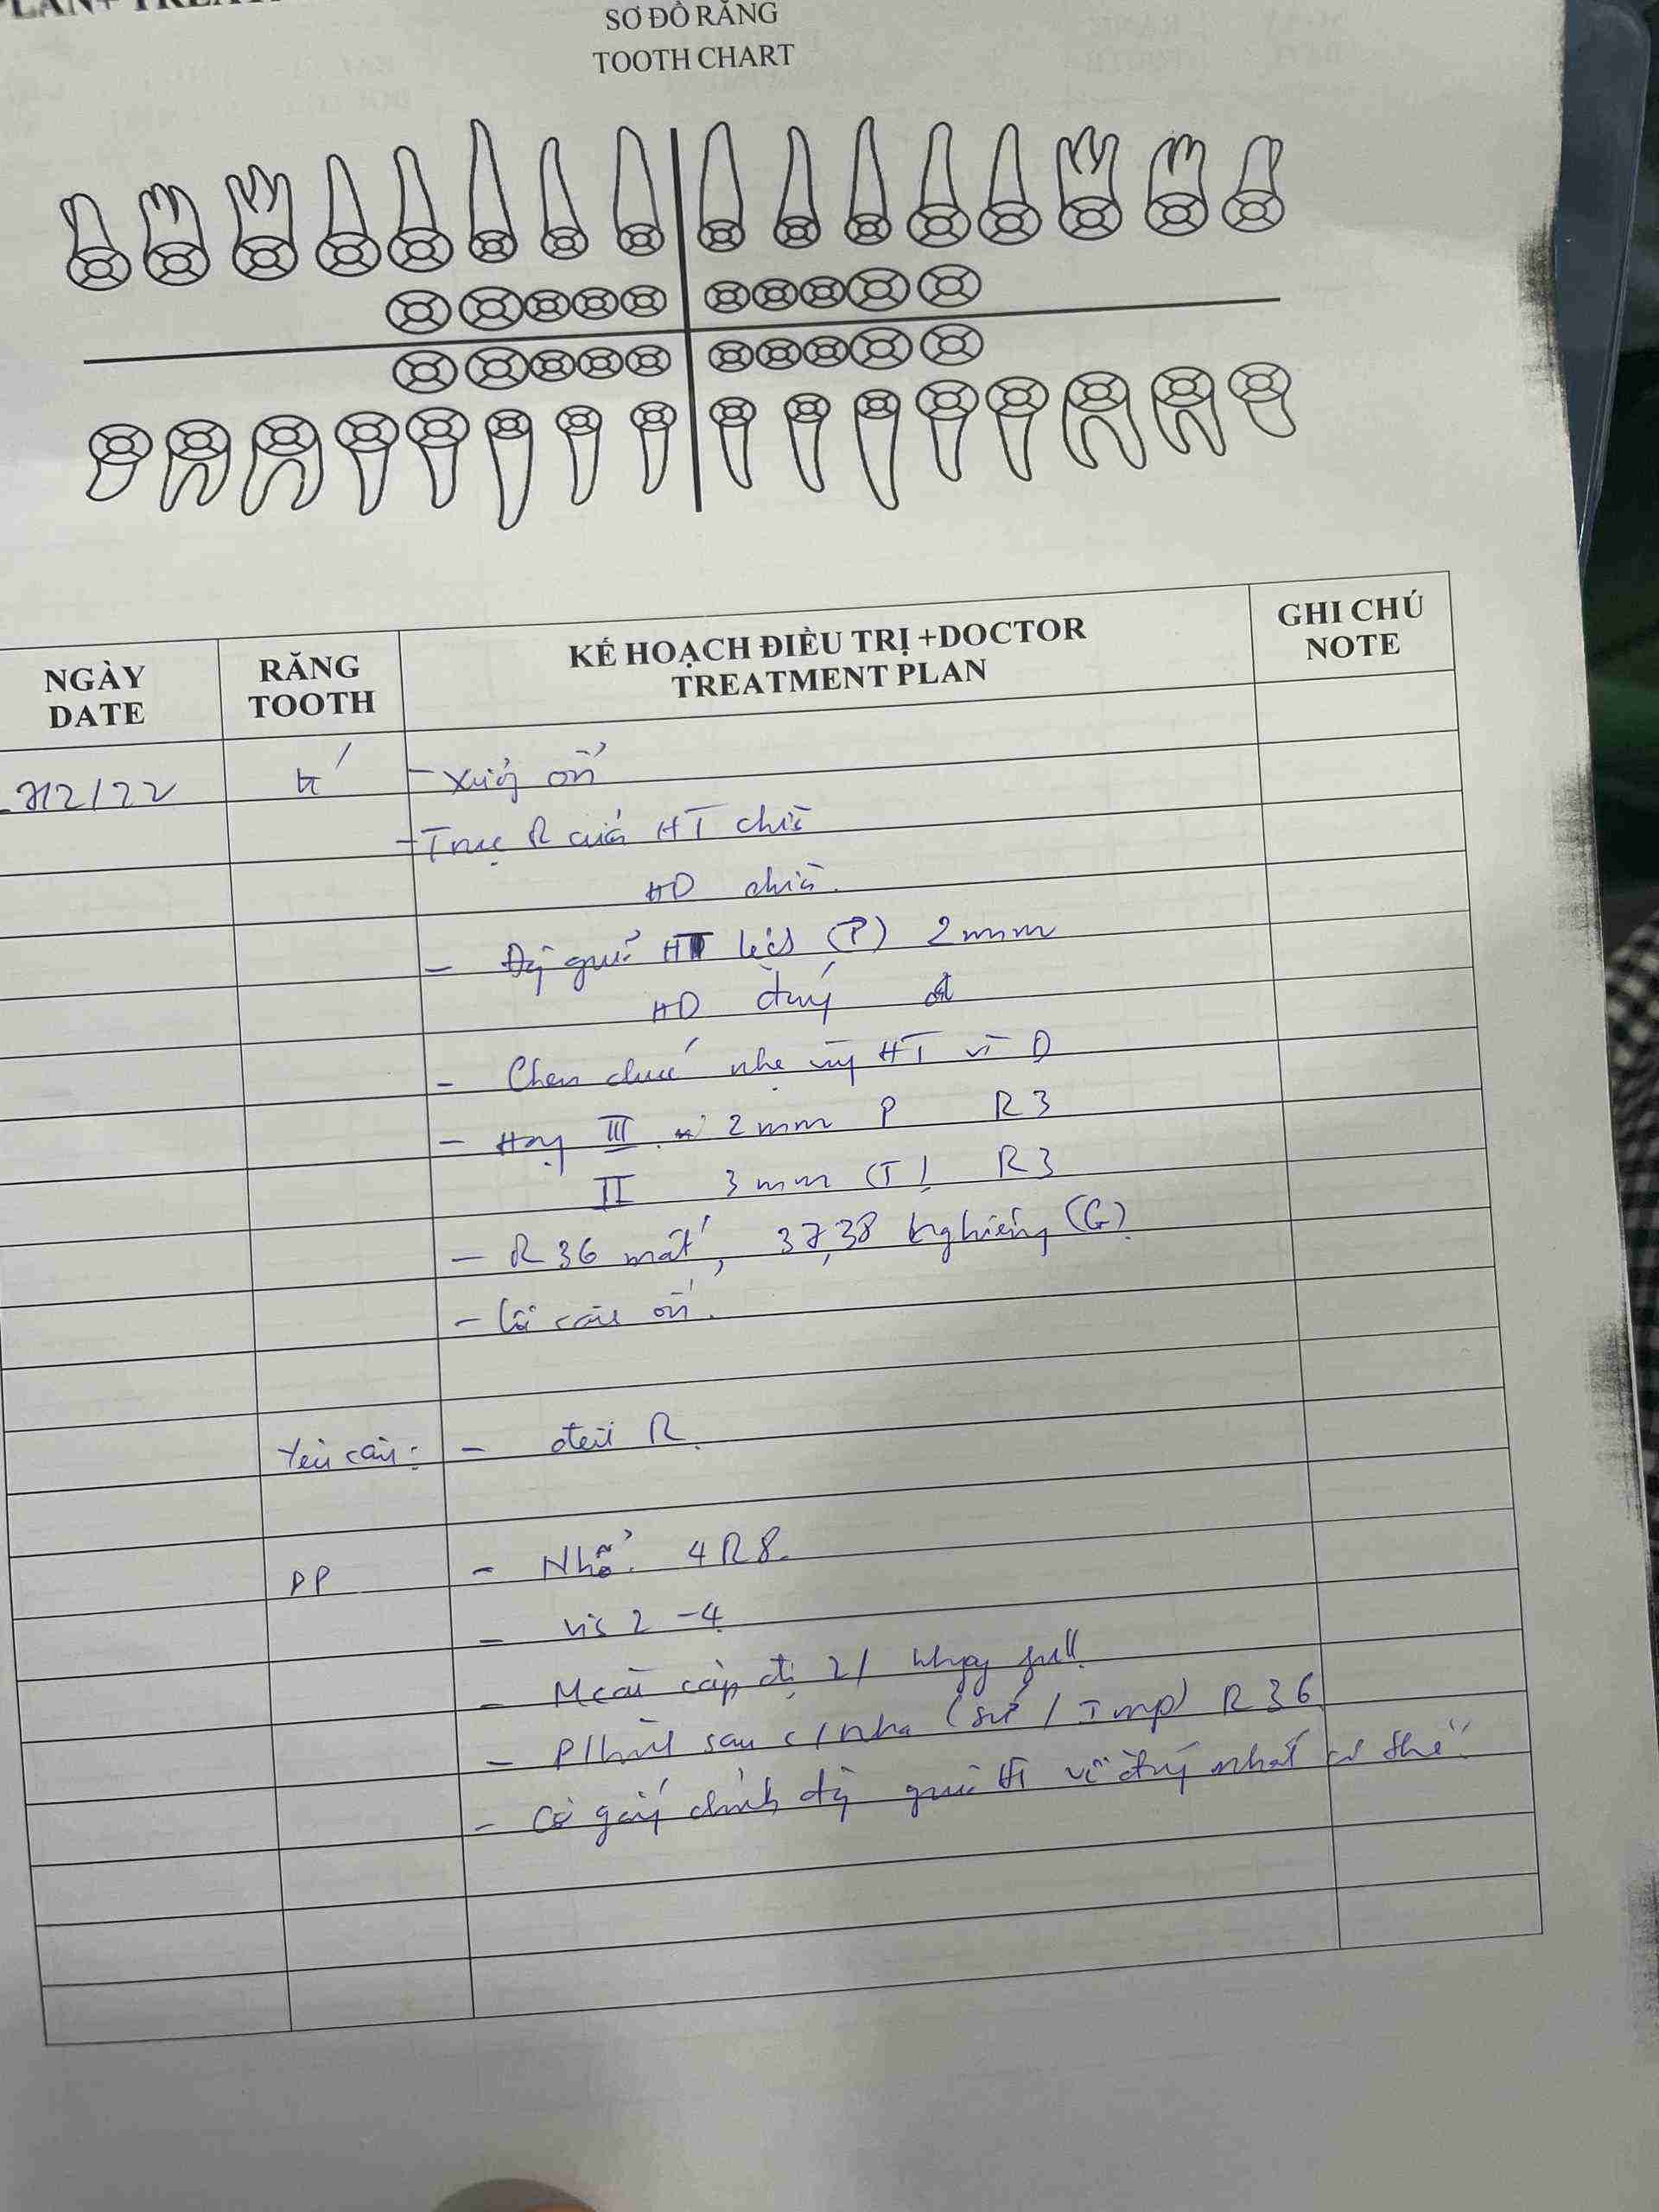 SƠ ĐỒ RĂNG
TOOTH CHART
NGÀY
DATE
RĂNG
TOOTH
KẾ HOẠCH ĐIỀU TRỊ +DOCTOR
TREATMENT PLAN
GHI CHÚ
NOTE
12/22
- Xương ổn
- Trục R cửa HT chìa
HD chìa.
- Đg giữa HT lệch (P) 2mm
HD đúng
- Chen chúc nhẹ HT và D
- Hạng III 2mm P R3
II 3mm (T) R3
- R36 mất, 37,38 nghiêng (G)
- Lồi cầu ổn.
Yêu cầu: - đều R.
PP - Nhổ 4R8.
- vis 2 -4
- Mcài full.
- P/hình sau c/nha (sứ / Imp) R36
- Cố gắng chỉnh đg giữa về đúng nhất có thể.